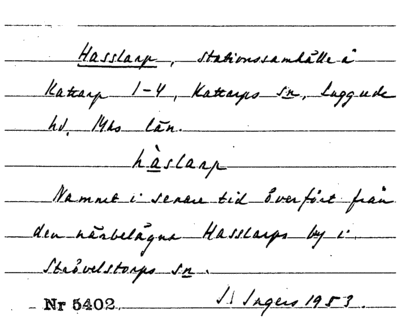 Hasslarp, stationssamhälle å
Kattarp 1-4, Kattarps sn, Luggude
hd, Mhs län.
hàslarp
Namnet i senare tid överfört från
den närbelägna Hasslarps by i
Strövelstorps sn.
Nr 5402. I. Ingers 1953.